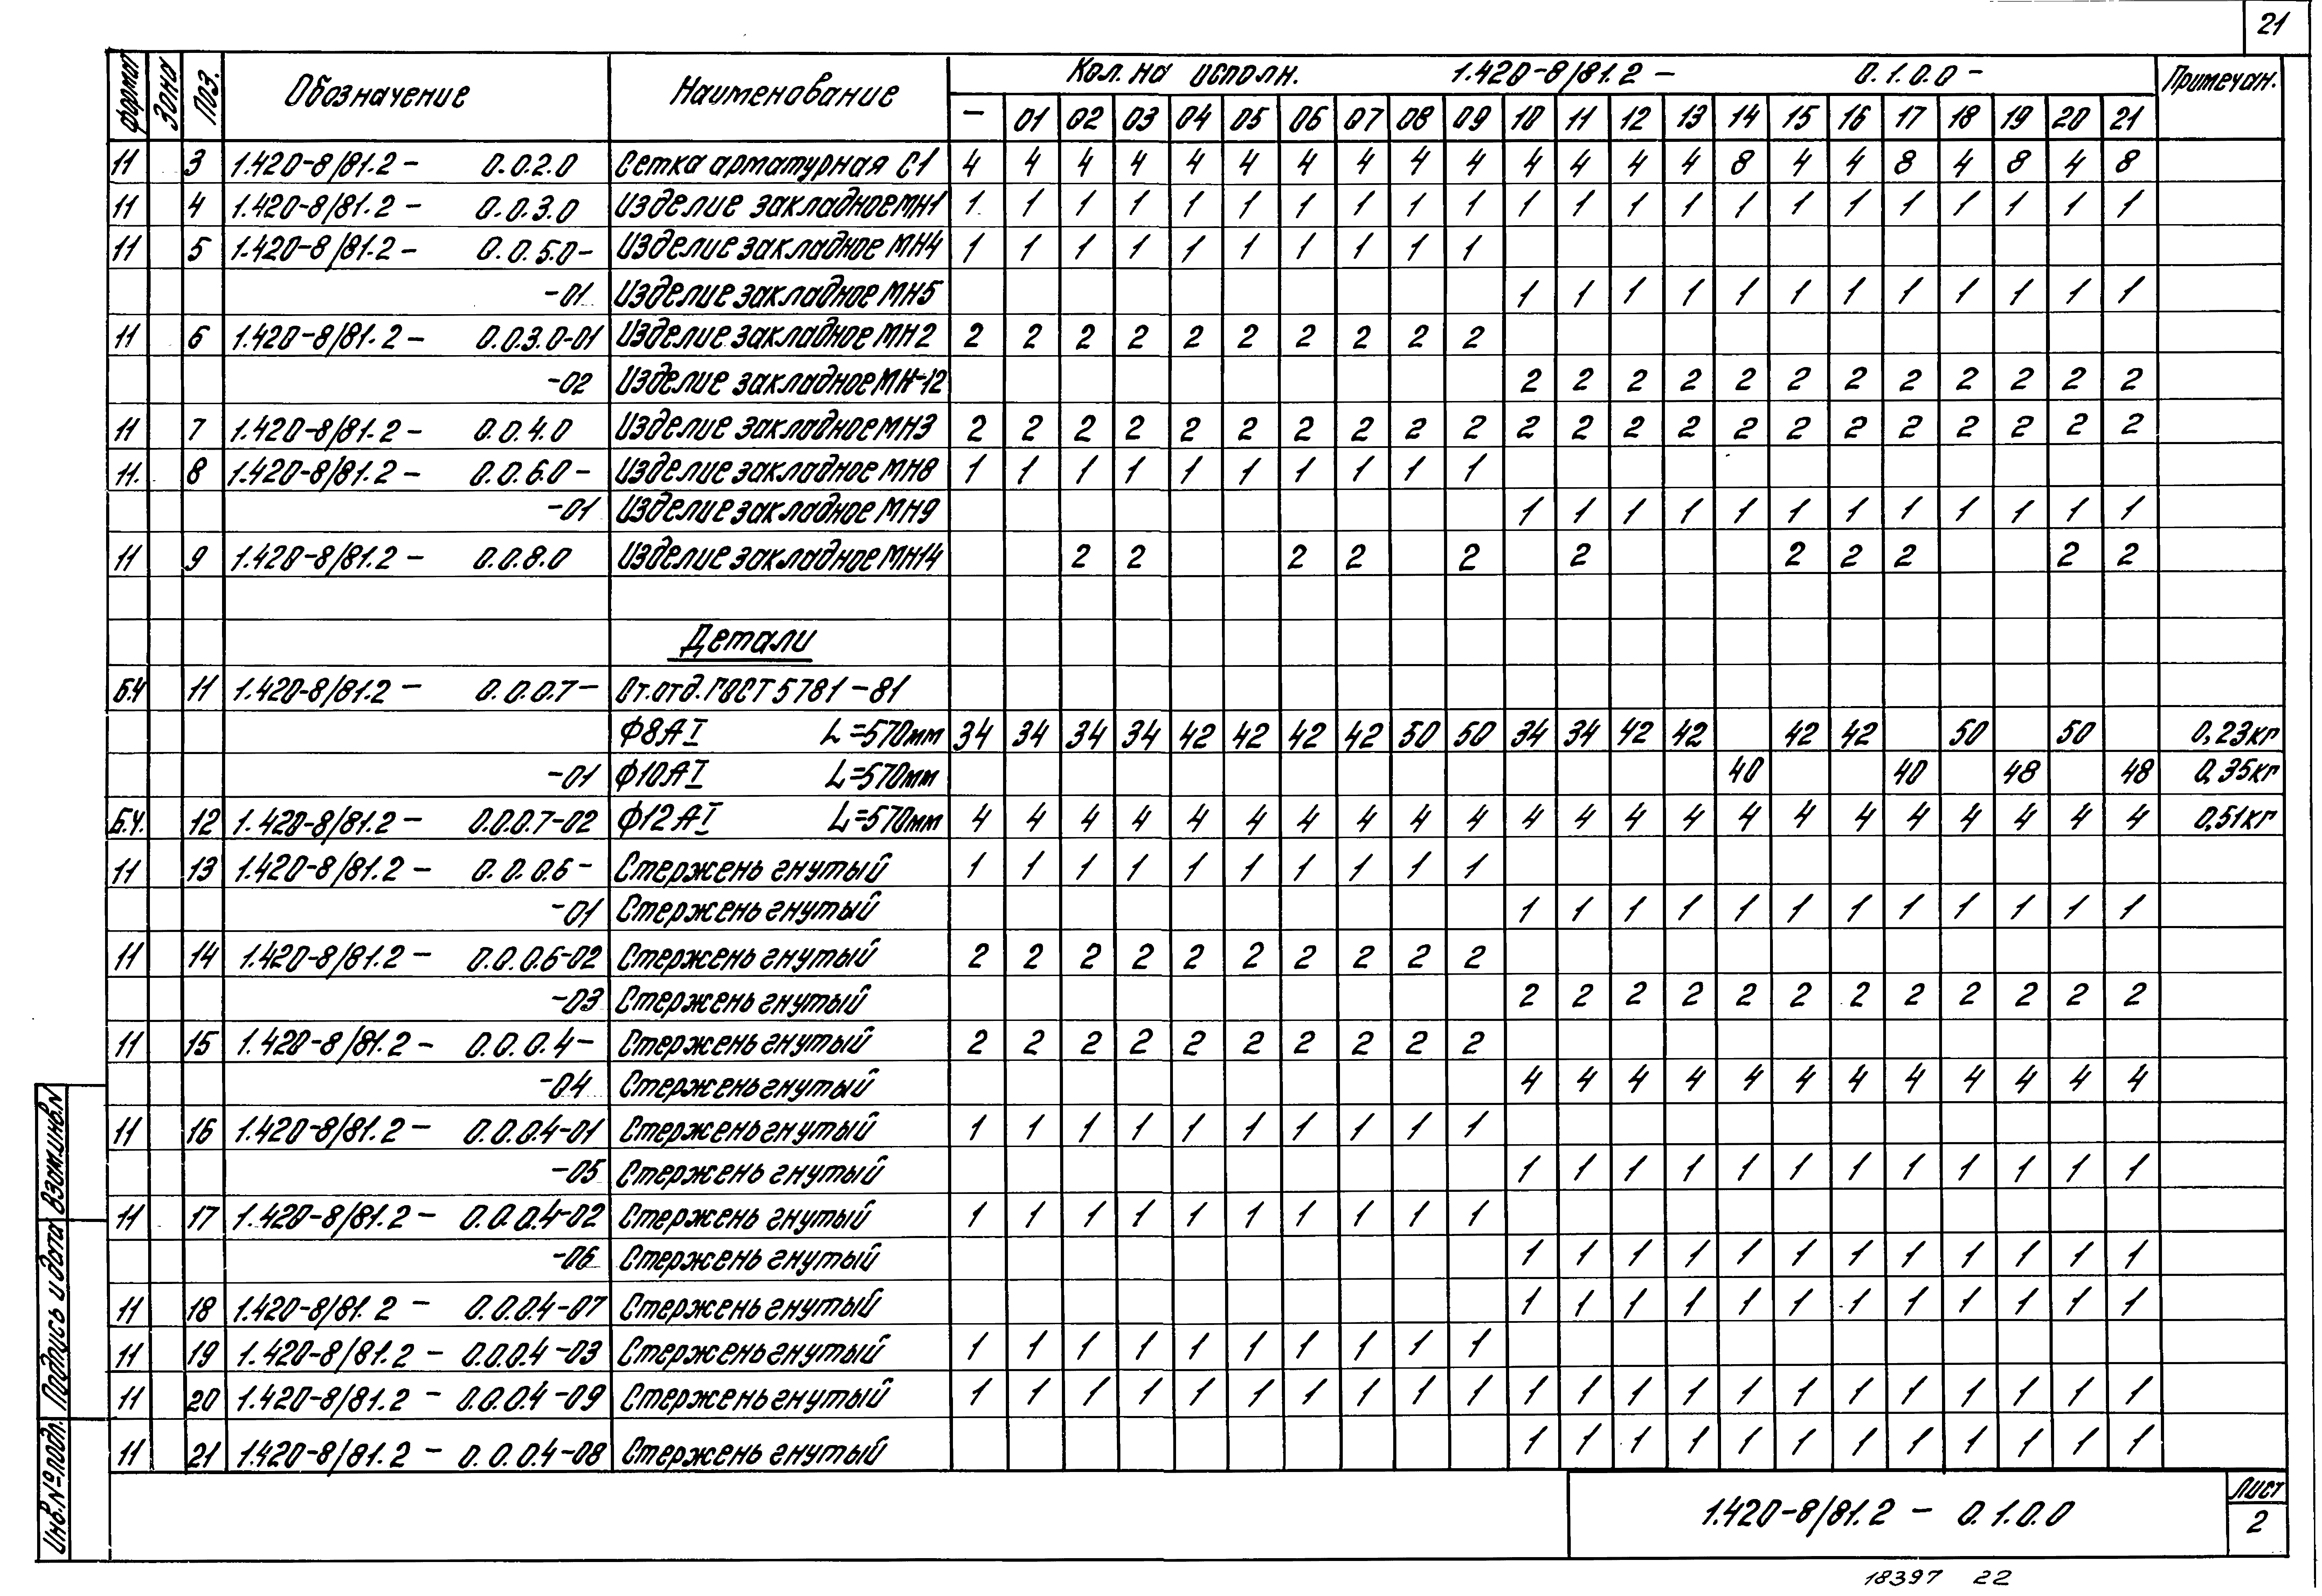 21
формат Зона Поз. Обозначение Наименование Кол. на исполн. 1.420-8/81.2 - 0.1.0.0 - Примечан.
- 01 02 03 04 05 06 07 08 09 10 11 12 13 14 15 16 17 18 19 20 21
11 3 1.420-8/81.2 - 0.0.2.0 Сетка арматурная С1 4 4 4 4 4 4 4 4 4 4 4 4 4 4 8 4 4 8 4 8 4 8
11 4 1.420-8/81.2 - 0.0.3.0 Изделие закладное МН1 1 1 1 1 1 1 1 1 1 1 1 1 1 1 1 1 1 1 1 1 1 1
11 5 1.420-8/81.2 - 0.0.5.0 - Изделие закладное МН4 1 1 1 1 1 1 1 1 1 1
-01 Изделие закладное МН5 1 1 1 1 1 1 1 1 1 1 1 1
11 6 1.420-8/81.2 - 0.0.3.0-01 Изделие закладное МН2 2 2 2 2 2 2 2 2 2 2
-02 Изделие закладное МН-12 2 2 2 2 2 2 2 2 2 2 2 2
11 7 1.420-8/81.2 - 0.0.4.0 Изделие закладное МН3 2 2 2 2 2 2 2 2 2 2 2 2 2 2 2 2 2 2 2 2 2 2
11. 8 1.420-8/81.2 - 0.0.6.0 - Изделие закладное МН8 1 1 1 1 1 1 1 1 1 1
-01 Изделие закладное МН9 1 1 1 1 1 1 1 1 1 1 1 1
11 9 1.420-8/81.2 - 0.0.8.0 Изделие закладное МН14 2 2 2 2 2 2 2 2 2 2 2
Детали
Б.Ч 11 1.420-8/81.2 - 0.0.0.7 - От.отд. ГОСТ 5781-81
Ф8АI L=570мм 34 34 34 34 42 42 42 42 50 50 34 34 42 42 42 42 50 50 0,23кг
-01 Ф10АI L=570мм 40 40 48 48 0,35кг
Б.Ч. 12 1.420-8/81.2 - 0.0.0.7-02 Ф12АI L=570мм 4 4 4 4 4 4 4 4 4 4 4 4 4 4 4 4 4 4 4 4 4 4 0,51кг
11 13 1.420-8/81.2 - 0.0.0.6 - Стержень гнутый 1 1 1 1 1 1 1 1 1 1
-01 Стержень гнутый 1 1 1 1 1 1 1 1 1 1 1 1
11 14 1.420-8/81.2 - 0.0.0.6-02 Стержень гнутый 2 2 2 2 2 2 2 2 2 2
-03 Стержень гнутый 2 2 2 2 2 2 2 2 2 2 2 2
11 15 1.420-8/81.2 - 0.0.0.4 - Стержень гнутый 2 2 2 2 2 2 2 2 2 2
-04 Стержень гнутый 4 4 4 4 4 4 4 4 4 4 4 4
11 16 1.420-8/81.2 - 0.0.0.4-01 Стержень гнутый 1 1 1 1 1 1 1 1 1 1
-05 Стержень гнутый 1 1 1 1 1 1 1 1 1 1 1 1
11 17 1.420-8/81.2 - 0.0.0.4-02 Стержень гнутый 1 1 1 1 1 1 1 1 1 1
-06 Стержень гнутый 1 1 1 1 1 1 1 1 1 1 1 1
11 18 1.420-8/81.2 - 0.0.0.4-07 Стержень гнутый 1 1 1 1 1 1 1 1 1 1 1 1
11 19 1.420-8/81.2 - 0.0.0.4-03 Стержень гнутый 1 1 1 1 1 1 1 1 1 1
11 20 1.420-8/81.2 - 0.0.0.4-09 Стержень гнутый 1 1 1 1 1 1 1 1 1 1 1 1 1 1 1 1 1 1 1 1 1 1
11 21 1.420-8/81.2 - 0.0.0.4-08 Стержень гнутый 1 1 1 1 1 1 1 1 1 1 1 1
Инв.№подл. Подпись и дата Взам.инв.N
1.420-8/81.2 - 0.1.0.0
Лист
2
18397 22